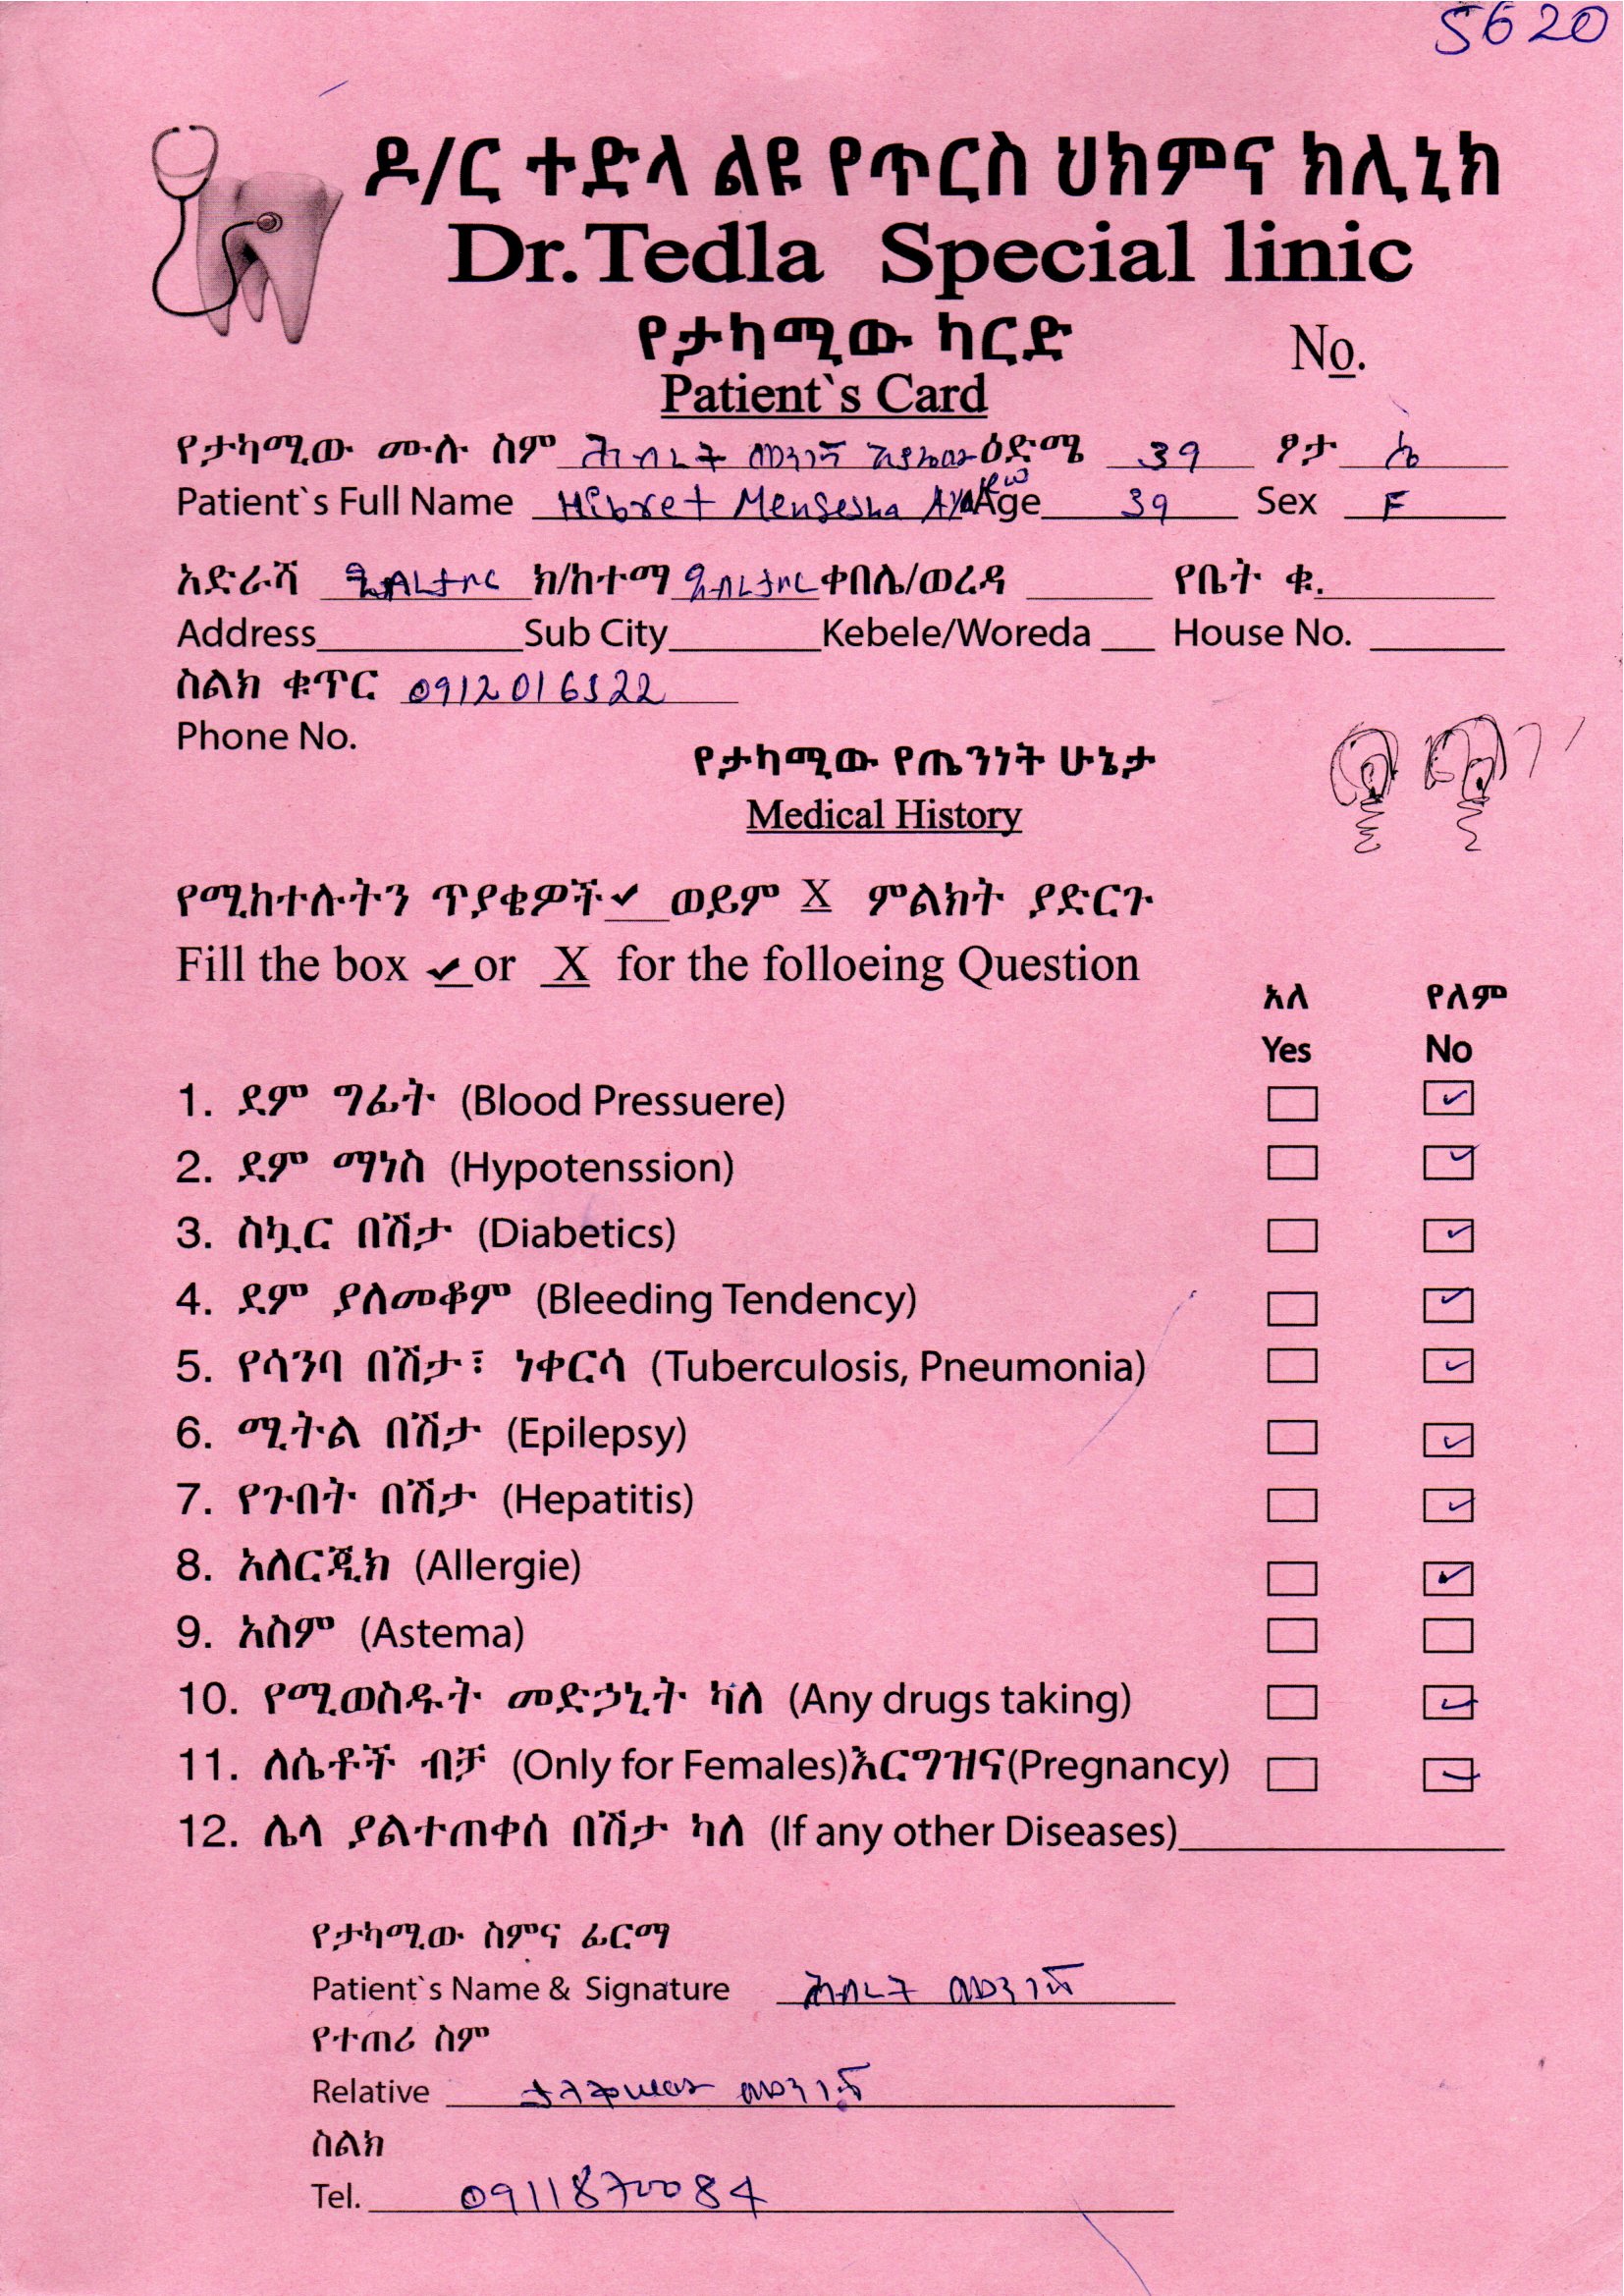 5620
ዶ/ር ተድላ ልዩ የጥርስ ህክምና ክሊኒክ
Dr.Tedla Special linic
የታካሚው ካርድ
No.
Patient`s Card
የታካሚው ሙሉ ስም ሕብረት መንገሻ አያሌው ዕድሜ 39 ፆታ ሴ
Patient`s Full Name Hibret Mengesha Ayalew Age 39 Sex F
አድራሻ ክ/ከተማ ቀበሌ/ወረዳ የቤት ቁ.
Address Sub City Kebele/Woreda House No.
ስልክ ቁጥር 0912016522
Phone No.
የታካሚው የጤንነት ሁኔታ
Medical History
የሚከተሉትን ጥያቄዎች ✓ ወይም X ምልክት ያድርጉ
Fill the box ✓ or X for the folloeing Question
አለ የለም
Yes No
1. ደም ግፊት (Blood Pressuere) ✓
2. ደም ማነስ (Hypotenssion) ✓
3. ስኳር በሽታ (Diabetics) ✓
4. ደም ያለመቆም (Bleeding Tendency) ✓
5. የሳንባ በሽታ፣ ነቀርሳ (Tuberculosis, Pneumonia) ✓
6. ሚትል በሽታ (Epilepsy) ✓
7. የጉበት በሽታ (Hepatitis) ✓
8. አለርጂክ (Allergie) ✓
9. አስም (Astema)
10. የሚወስዱት መድኃኒት ካለ (Any drugs taking) ✓
11. ለሴቶች ብቻ (Only for Females)እርግዝና(Pregnancy) ✓
12. ሌላ ያልተጠቀሰ በሽታ ካለ (If any other Diseases)
የታካሚው ስምና ፊርማ
Patient`s Name & Signature ሕብረት መንገሻ
የተጠሪ ስም
Relative መንገሻ
ስልክ
Tel. 0911870084